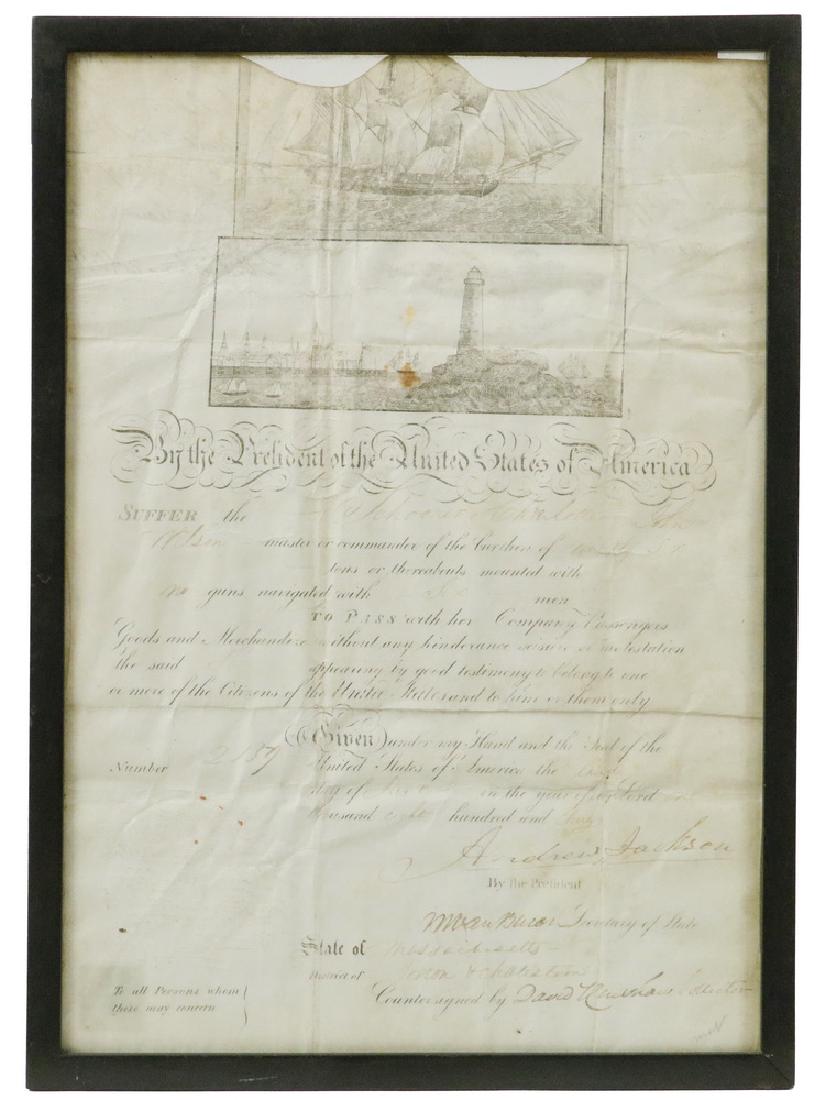 By the President of the United States of America
SUFFER the Schooner John
Wilson master or commander of the burthen of
tons or thereabouts mounted with
no guns navigated with Six men
TO PASS with her Company Passengers
Goods and Merchandize without any hinderance seisure or molestation
the said appearing by good testimony to belong to one
or more of the Citizens of the United States and to him or them only
Given under my Hand and the Seal of the
Number United States of America the
day of in the year of our Lord one
thousand eight hundred and thirty
Andrew Jackson
By the President
M Van Buren Secretary of State
State of Massachusetts
District of Boston & Charlestown
To all Persons whom
these may concern
Countersigned by David Henshaw Collector